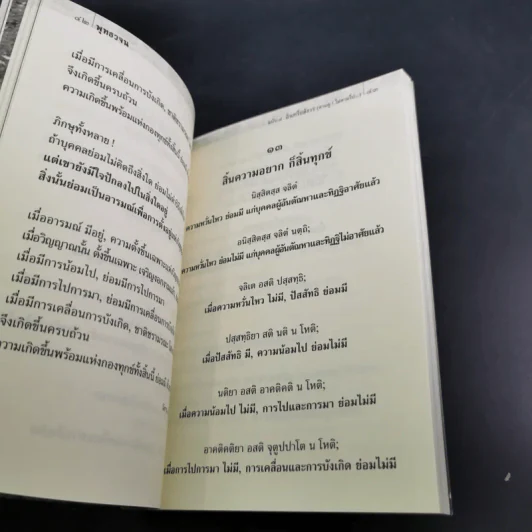 ๔๒ พุทธวจน
เมื่อมีการเคลื่อนการบังเกิด,
จึงเกิดขึ้นครบถ้วน
ความเกิดขึ้นพร้อมแห่งกองทุกข์ทั้งสิ้น
ภิกษุทั้งหลาย !
ถ้าบุคคลย่อมไม่คิดถึงสิ่งใด
แต่เขายังมีใจปักลงไปในสิ่งใดอยู่
สิ่งนั้นย่อมเป็นอารมณ์เพื่อการตั้งอยู่
เมื่ออารมณ์ มีอยู่, ความตั้งขึ้นเฉพาะ
เมื่อวิญญาณนั้น ตั้งขึ้นเฉพาะ
เมื่อมีการน้อมไป, ย่อมมีการไปการมา
เมื่อมีการไปการมา, ย่อมมีการเคลื่อนการบังเกิด
เมื่อมีการเคลื่อนการบังเกิด, ชาติชรามรณะ
จึงเกิดขึ้นครบถ้วน
ความเกิดขึ้นพร้อมแห่งกองทุกข์ทั้งสิ้นนี้ ย่อมมี
๑๓
สิ้นความอยาก ก็สิ้นทุกข์
นิสฺสิตสฺส จลิตํ
ความหวั่นไหว ย่อมมี แก่บุคคลผู้อันตัณหาและทิฏฐิอาศัยแล้ว
อนิสฺสิตสฺส จลิตํ นตฺถิ;
ความหวั่นไหว ย่อมไม่มี แก่บุคคลผู้อันตัณหาและทิฏฐิไม่อาศัยแล้ว
จลิเต อสติ ปสฺสทฺธิ;
เมื่อความหวั่นไหว ไม่มี, ปัสสัทธิ ย่อมมี
ปสฺสทฺธิยา สติ นติ น โหติ;
เมื่อปัสสัทธิ มี, ความน้อมไป ย่อมไม่มี
นติยา อสติ อาคติคติ น โหติ;
เมื่อความน้อมไป ไม่มี, การไปและการมา ย่อมไม่มี
อาคติคติยา อสติ จุตูปปาโต น โหติ;
เมื่อการไปการมา ไม่มี, การเคลื่อนและการบังเกิด ย่อมไม่มี